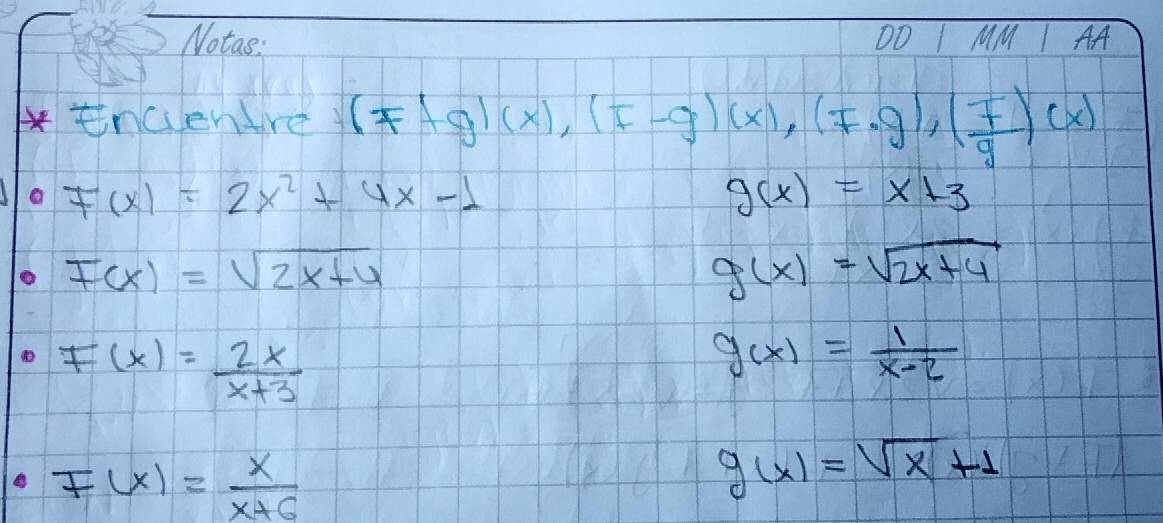 Notas: DD | MM | AA
* Encuentre (F+g)(x), (F-g)(x), (F.g), (F/g)(x)
• F(x) = 2x² + 4x - 1 g(x) = x+3
• F(x) = √(2x+4) g(x) = √(2x+4)
• F(x) = 2x/(x+3) g(x) = 1/(x-2)
• F(x) = x/(x+6) g(x) = √x + 1